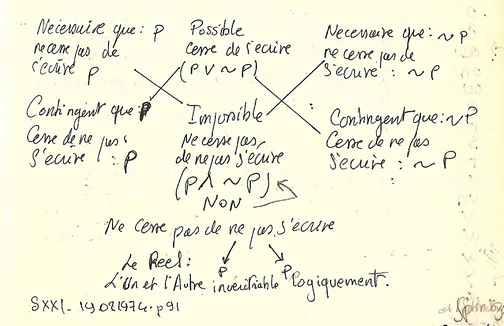 Necessaire que: P
ne cesse pas de
s'écrire P
Possible
Cesse de s'ecrire
(P V ~ P)
Necessaire que: ~ P
ne cesse pas de
s'ecrire : ~ P
Contingent que: P
Cesse de ne pas
s'écrire : P
Impossible
Ne cesse pas
de ne pas s'écrire
(P Λ ~ P)
NON
Contingent que: ~ P
Cesse de ne pas
s'ecrire : ~ P
Ne Cesse pas de ne pas s'écrire
Le Reel: P P
L'Un et l'Autre inveritable logiquement.
SXXI - 19021974 - p91